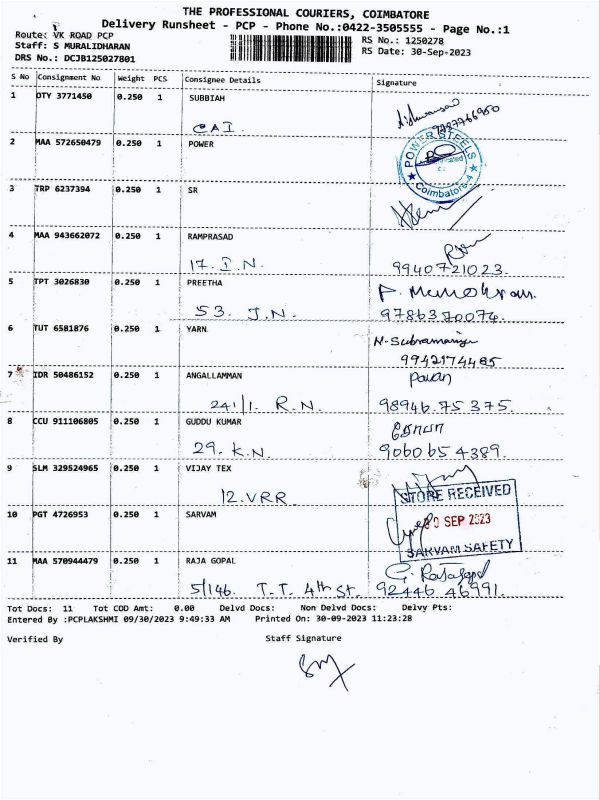 THE PROFESSIONAL COURIERS, COIMBATORE
Delivery Runsheet - PCP - Phone No.:0422-3505555 - Page No.:1
Route: VK ROAD PCP
RS No.: 1250278
Staff: S MURALIDHARAN
RS Date: 30-Sep-2023
DRS No.: DCJB125027801
S No Consignment No Weight PCS Consignee Details Signature
1 DTY 3771450 0.250 1 SUBBIAH
CAI.
2 MAA 572650479 0.250 1 POWER
POWER STEELS
Coimbatore-4
3 TRP 6237394 0.250 1 SR
4 MAA 943662072 0.250 1 RAMPRASAD
17. I.N. 9940721023.
5 TPT 3026830 0.250 1 PREETHA
53. J.N. 9786370074.
6 TUT 6581876 0.250 1 YARN
N-Subramaniyan
9942174465
7 IDR 50486152 0.250 1 ANGALLAMMAN Pavan
241/1. R.N. 98946.75375.
8 CCU 911106805 0.250 1 GUDDU KUMAR
29. K.N. 9060654389.
9 SLM 329524965 0.250 1 VIJAY TEX
12.VRR
STORE RECEIVED
10 PGT 4726953 0.250 1 SARVAM
30 SEP 2023
SARVAM SAFETY
11 MAA 570944479 0.250 1 RAJA GOPAL G. Rajagopal
5/146. T.T. 4th St. 92446 46991.
Tot Docs: 11 Tot COD Amt: 0.00 Delvd Docs: Non Delvd Docs: Delvy Pts:
Entered By :PCPLAKSHMI 09/30/2023 9:49:33 AM Printed On: 30-09-2023 11:23:28
Verified By Staff Signature